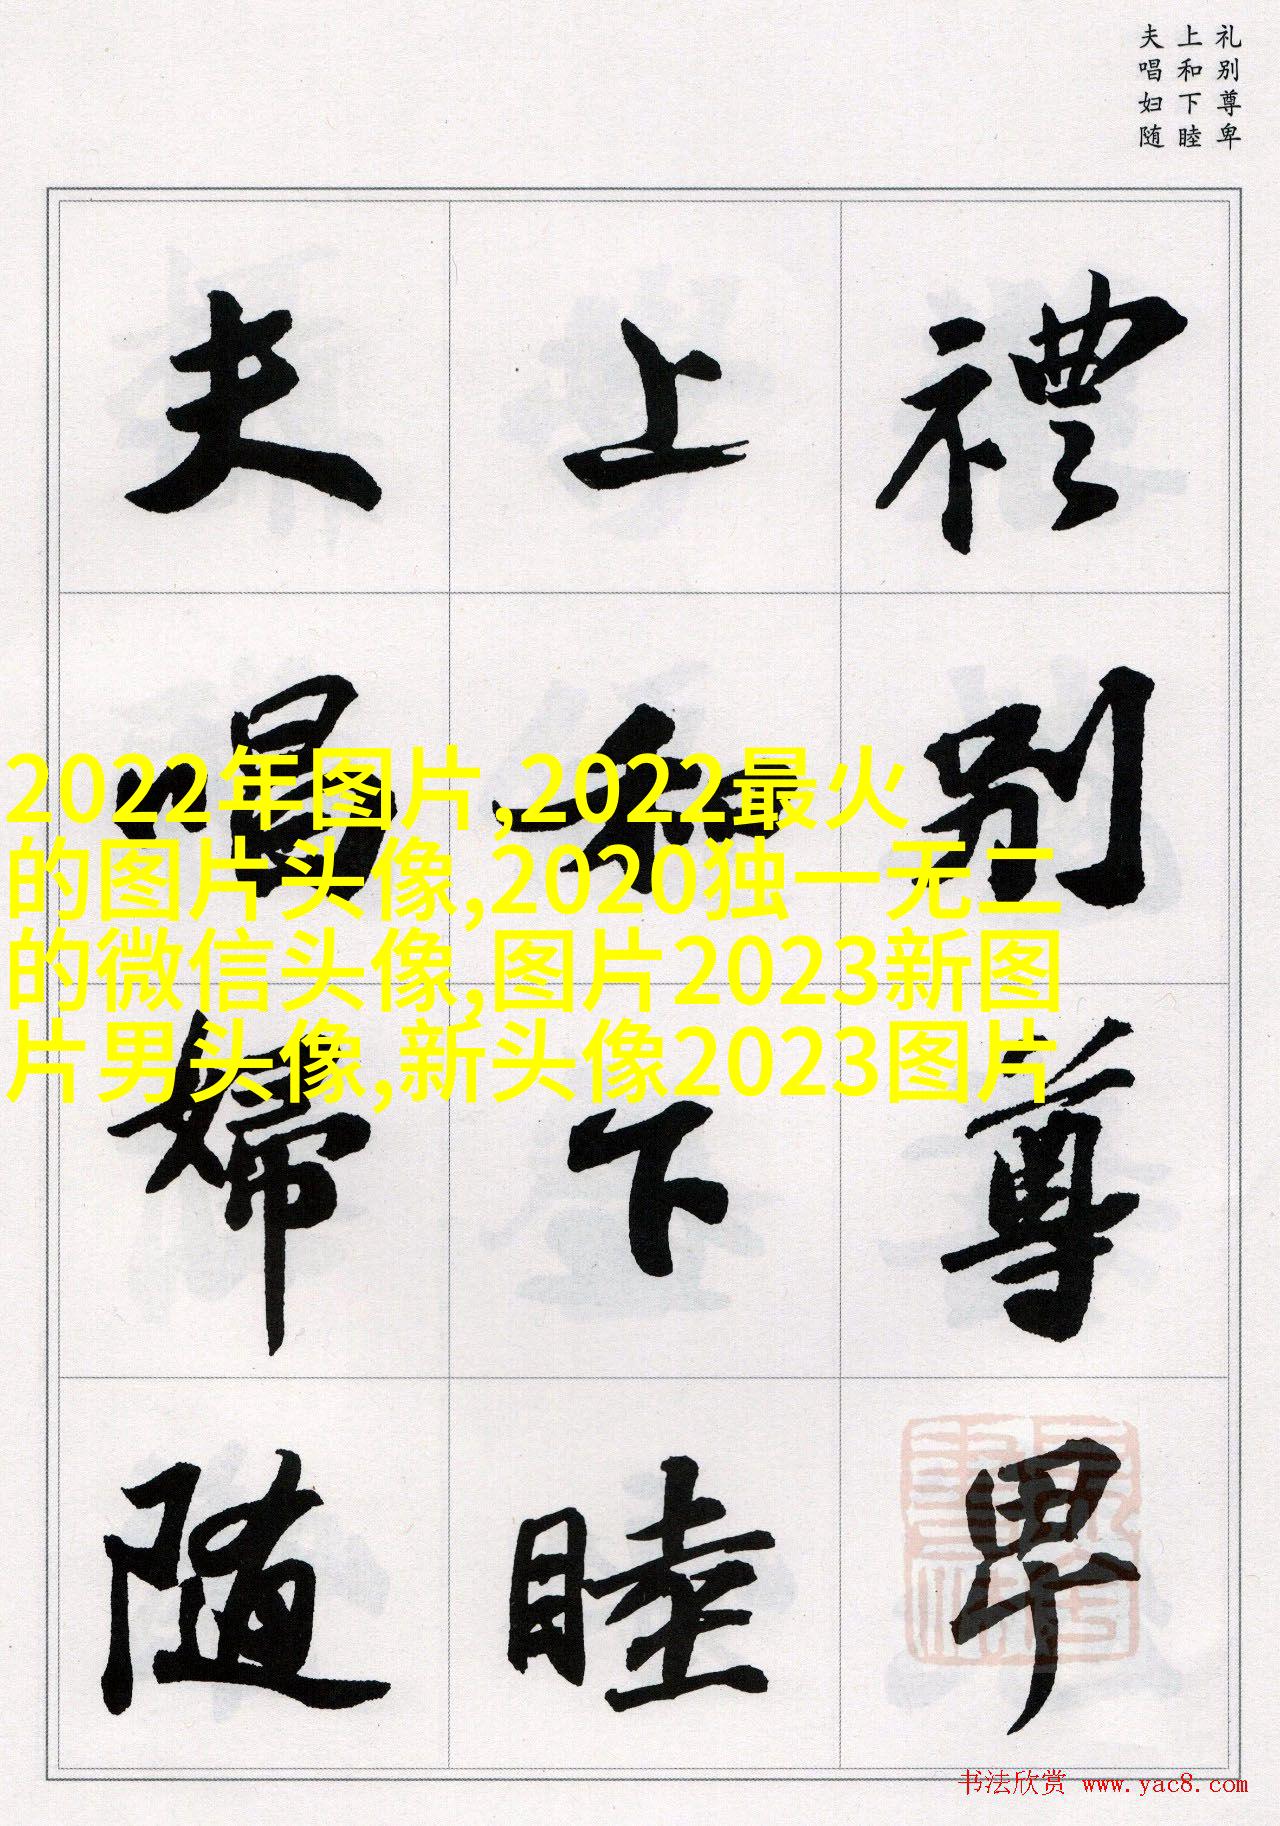 礼别尊卑
上和下睦
夫唱妇随
禮别尊卑
上和下睦
夫唱婦随
2022年图片,2022最火
的图片头像,2020独一无二
的微信头像,图片2023新图
片男头像,新头像2023图片
书法欣赏 www.yac8.com